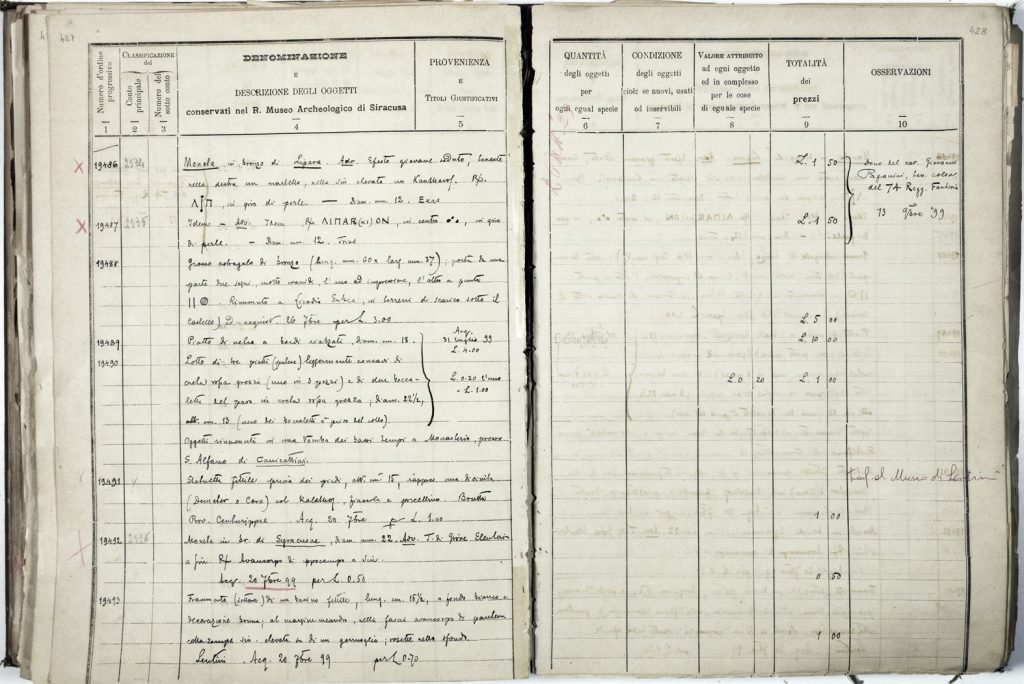 427
Numero d'ordine progressivo
CLASSIFICAZIONE del
Conto principale
Numero del sotto conto
DENOMINAZIONE
E
DESCRIZIONE DEGLI OGGETTI
conservati nel R. Museo Archeologico di Siracusa
PROVENIENZA
E
TITOLI GIUSTIFICATIVI
1 2 3 4 5
19486 2534 Moneta, in bronzo di Lipara. Adv. Efesto giovane seduto, tenente
nella destra un martello, nella sin. elevata un Kantharos. Rf.
in giro di perle. — Diam. mm. 12. Exas
19487 2535 Idem — Adv. Idem Rf. ΛΙΠΑΡ(αι)ΟΝ, in centro, in giro
di perle. — Diam. mm. 12. Trias
19488 Grosso astragalo di bronzo (lung. mm. 60 x larg. mm. 37); porta da una
parte due segni, molto svaniti, l'uno ad impressione, l'altro a punta
Rinvenuto a Licodia Eubea, in terreni di scarico sotto il
Castello) D. acquist. 26 7bre per L. 3.00
19489 Piatto di velia a bordi rialzati, diam. cm. 18.
Acq.
31 Luglio 99
L. 4.00
19490 Lotto di tre piatti (patere) leggermente concavi di
creta rossa grezza (uno in 3 pezzi) e di due boccaletti
del pari in creta rossa grezza; diam. 22½,
alt. cm. 13 (uno dei boccaletti è privo del collo).
L. 0.20 l'uno
= L. 1.00
Oggetti rinvenuti in una tomba dei bassi tempi a Monasterio, presso
S. Alfano di Canicattini.
19491 Statuetta fittile priva dei piedi, alt. cm. 15, rappres. una divinità
(Demeter o Cora) col Kalathos, fiaccola e porcellino. Brutta
Prov. Centuripae Acq. 20 7bre L. 1.00
19492 2536 Moneta in br. di Syracusae, diam. mm. 22. Adv. T. di Giove Eleuterio
a sin. Rf. Avancorpo di ippocampo a sin.
Acq. 20 7bre 99 per L. 0.50
19493 Frammento (settore) di un bacino fittile, lung. cm. 18½, a fondo bianco e
decorazione bruna; al margine meandro, nella faccia avancorpo di pantera
colla zampa sin. elevata su di un germoglio; rosette nello sfondo.
Lentini Acq. 20 7bre 99 per L. 0.70
428
QUANTITÀ
degli oggetti
per
ogni egual specie
CONDIZIONE
degli oggetti
cioè: se nuovi, usati
od inservibili
VALORE ATTRIBUITO
ad ogni oggetto
ed in complesso
per le cose
di eguale specie
TOTALITÀ
dei
prezzi
OSSERVAZIONI
6 7 8 9 10
L. 1 50
dono del cav. Giovanni
Papanini, ten. colon.
del 74 Regg. Fanteria
13 9bre '99
L. 1 50
L. 5 00
L. 10 00
L. 0 20 L. 1 00
trasf. al Museo di Lentini
1 00
0 50
1 00